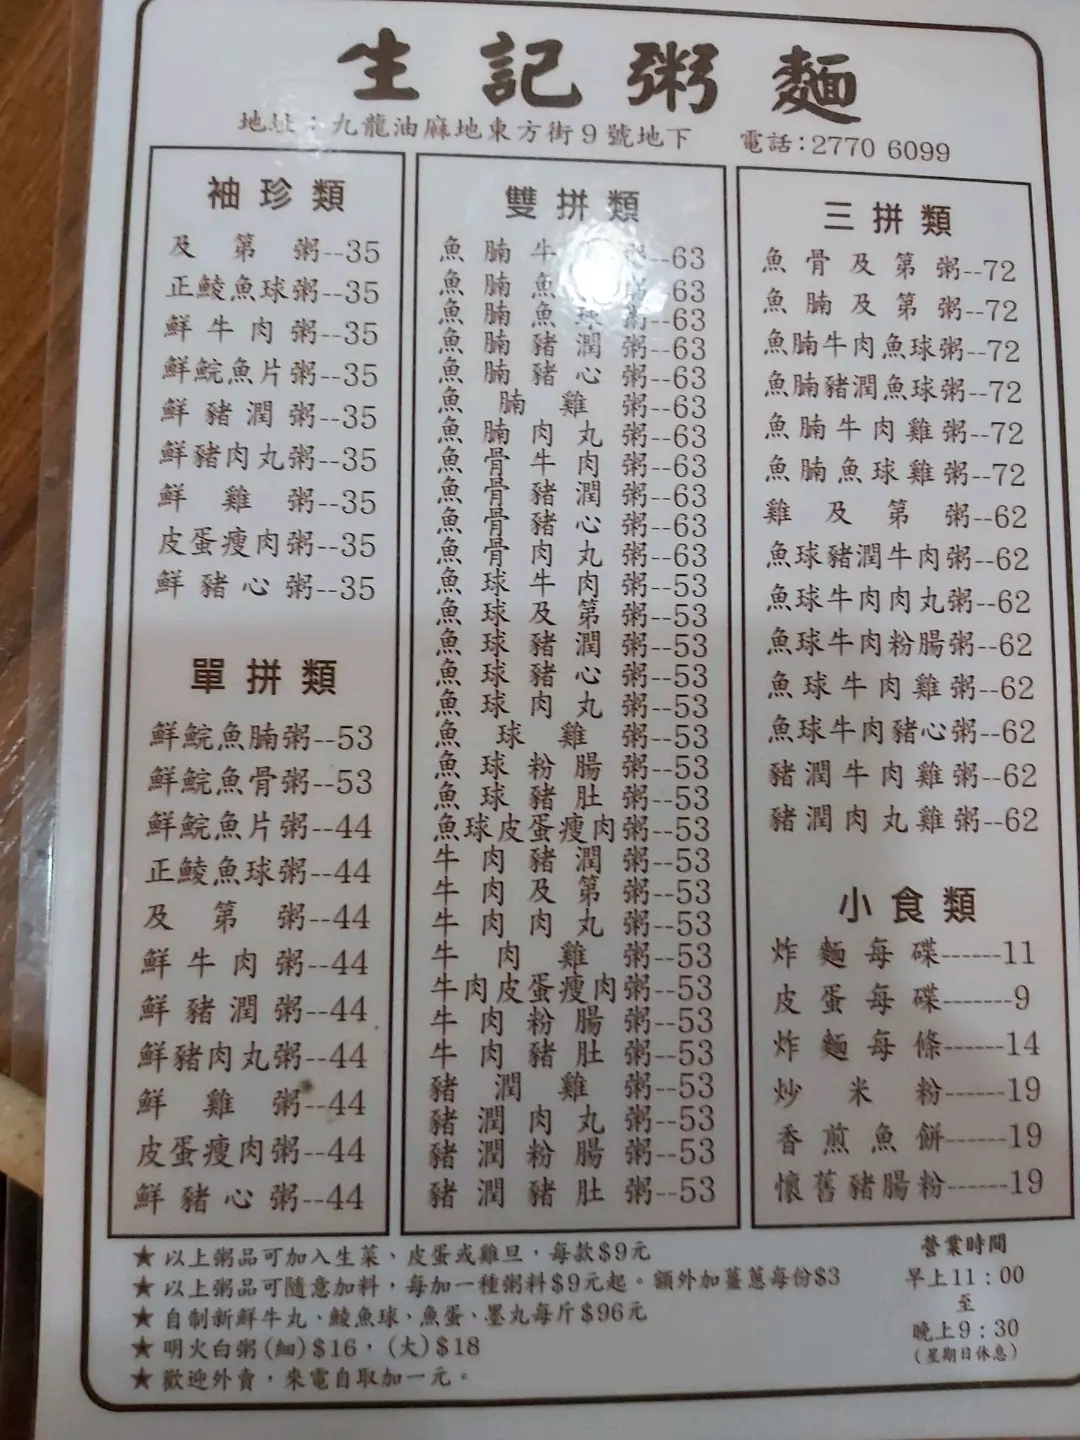 生記粥麵
地址：九龍油麻地東方街9號地下 電話：2770 6099
袖珍類
及第粥--35
正鯪魚球粥--35
鮮牛肉粥--35
鮮鯇魚片粥--35
鮮豬潤粥--35
鮮豬肉丸粥--35
鮮雞粥--35
皮蛋瘦肉粥--35
鮮豬心粥--35
單拼類
鮮鯇魚腩粥--53
鮮鯇魚骨粥--53
鮮鯇魚片粥--44
正鯪魚球粥--44
及第粥--44
鮮牛肉粥--44
鮮豬潤粥--44
鮮豬肉丸粥--44
鮮雞粥--44
皮蛋瘦肉粥--44
鮮豬心粥--44
雙拼類
魚腩牛 --63
魚腩魚 粥--63
魚腩魚球粥--63
魚腩豬潤粥--63
魚腩豬心粥--63
魚腩雞粥--63
魚腩肉丸粥--63
魚骨牛肉粥--63
魚骨豬潤粥--63
魚骨豬心粥--63
魚骨肉丸粥--63
魚球牛肉粥--53
魚球及第粥--53
魚球豬潤粥--53
魚球豬心粥--53
魚球肉丸粥--53
魚球雞粥--53
魚球粉腸粥--53
魚球豬肚粥--53
魚球皮蛋瘦肉粥--53
牛肉豬潤粥--53
牛肉及第粥--53
牛肉肉丸粥--53
牛肉雞粥--53
牛肉皮蛋瘦肉粥--53
牛肉粉腸粥--53
牛肉豬肚粥--53
豬潤雞粥--53
豬潤肉丸粥--53
豬潤粉腸粥--53
豬潤豬肚粥--53
三拼類
魚骨及第粥--72
魚腩及第粥--72
魚腩牛肉魚球粥--72
魚腩豬潤魚球粥--72
魚腩牛肉雞粥--72
魚腩魚球雞粥--72
雞及第粥--62
魚球豬潤牛肉粥--62
魚球牛肉肉丸粥--62
魚球牛肉粉腸粥--62
魚球牛肉雞粥--62
魚球牛肉豬心粥--62
豬潤牛肉雞粥--62
豬潤肉丸雞粥--62
小食類
炸麵每碟------11
皮蛋每碟-------9
炸麵每條------14
炒米粉------19
香煎魚餅------19
懷舊豬腸粉------19
★以上粥品可加入生菜、皮蛋或雞旦，每款$9元
★以上粥品可隨意加料，每加一種粥料$9元起。額外加薑蔥每份$3
★自制新鮮牛丸、鯪魚球、魚蛋、墨丸每斤$96元
★明火白粥(細)$16，(大)$18
★歡迎外賣，來電自取加一元。
營業時間
早上11：00
至
晚上9：30
(星期日休息)